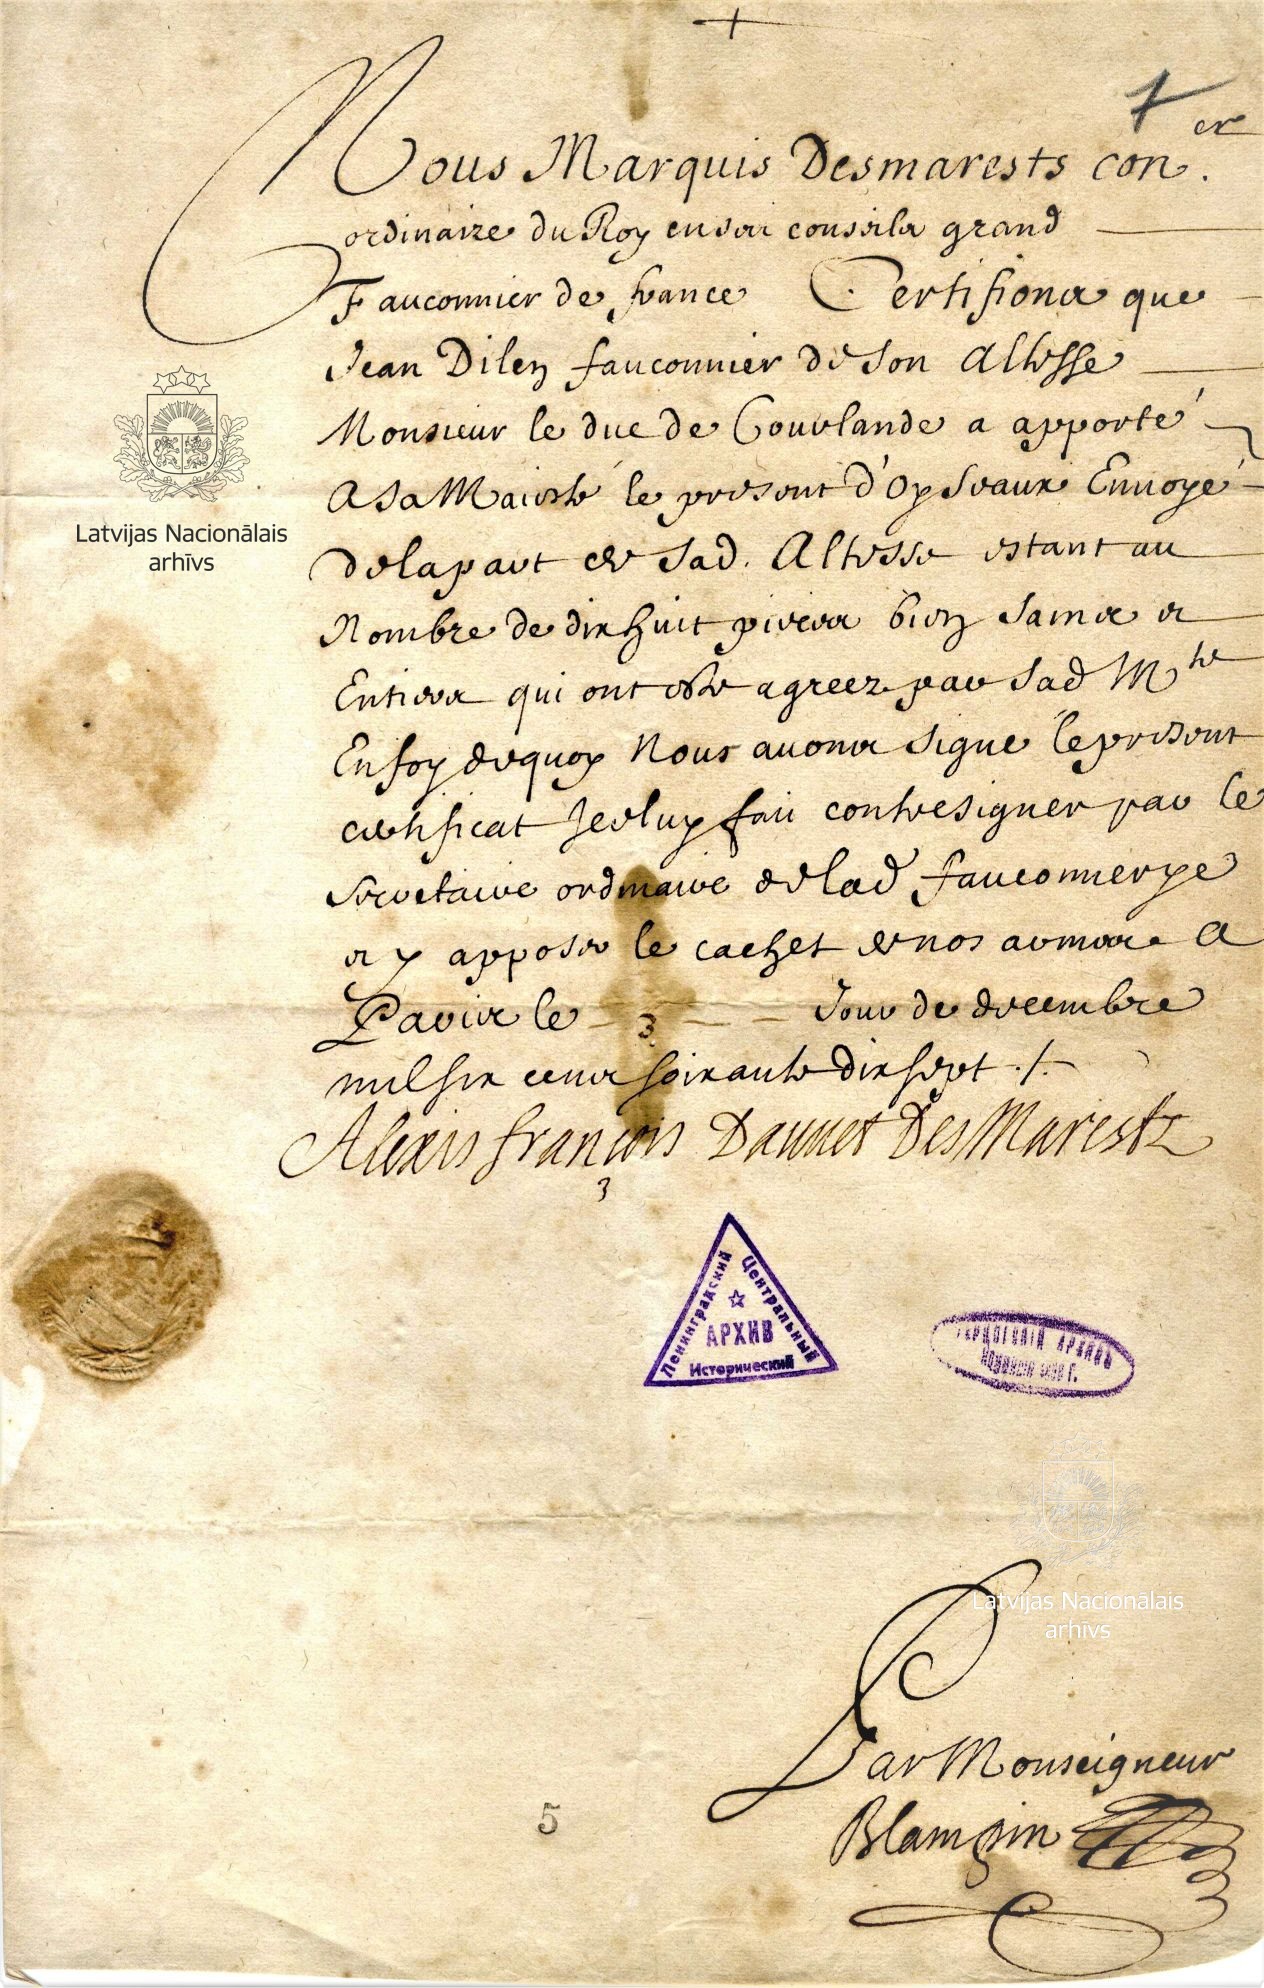 7
Nous Marquis Desmarests con.er
ordinaire du Roy en ses conseils grand
Fauconnier de france Certifions que
Jean Dilen fauconnier de Son Altesse
Monsieur le duc de Courlande a apporté
A Sa Maiesté le present d'Oyseaux Enuoyé
de la part de Sad. Altesse estant au
Nombre de dix huit pieces bien Saines et
Entieres qui ont esté agreez par Sad Mte
En foy de quoy Nous auons signé le present
certificat Icelluy fait contresigner par le
Secretaire ordinaire de lad fauconnerye
et y apposer le cachet de nos armes A
Paris le 3 Jour de decembre
mil six cens soixante dix sept ./.
Alexis françois Dauuet DesMarestz
Latvijas Nacionālais
arhīvs
Ленинградский Центральный
АРХИВ
Исторический
АРХИВЪ
Г.
Latvijas Nacionālais
arhīvs
Par Monseigneur
Blampin
5